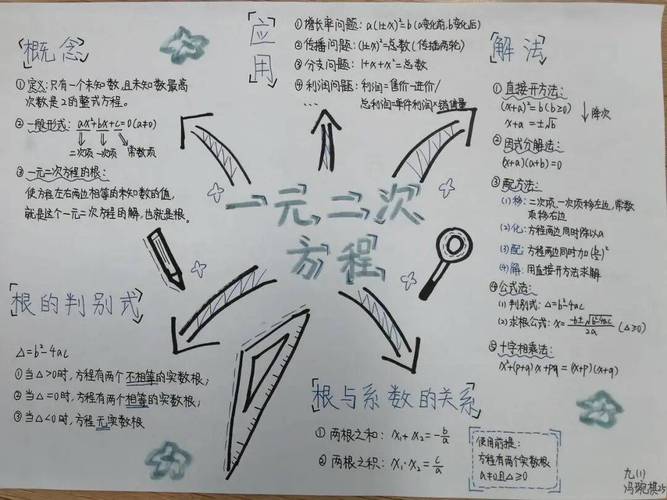 概念
① 定义:只有一个未知数,且未知数最高
次数是2的整式方程。
② 一般形式:ax²+bx+c=0(a≠0)
二次项 一次项 常数项
③ 一元二次方程的根:
使方程左右两边相等的未知数的值,
就是这个一元二次方程的解,也就是根。
应用
① 增长率问题:a(1±x)²=b(a变化前,b变化后)
② 传播问题:(1+x)²=总数(传播两轮)
③ 分支问题:1+x+x²=总数
④ 利润问题:利润=售价-进价/
总利润=单件利润×销售量
...
解法
① 直接开方法:
(x+a)²=b(b≥0)
x+a=±√b
降次
② 因式分解法:
(x+a)(x+b)=0
③ 配方法:
(1)移:二次项、一次项移左边,常数
项移右边
(2)化:方程两边同时除以a
(3)配:方程两边同时加(b/2)²
(4)解:用直接开方法求解
④ 公式法:
(1)判别式:△=b²-4ac
(2)求根公式:x=(-b±√b²-4ac)/2a (△≥0)
⑤ 十字相乘法:
x²+(p+q)x+pq=(x+p)(x+q)
一元二次
方程
根的判别式
△=b²-4ac
① 当△>0时,方程有两个不相等的实数根;
② 当△=0时,方程有两个相等的实数根;
③ 当△<0时,方程无实数根
根与系数的关系
① 两根之和:x₁+x₂=-b/a
② 两根之积:x₁·x₂=c/a
使用前提:
方程有两个实数根
a≠0且△≥0
九(1)